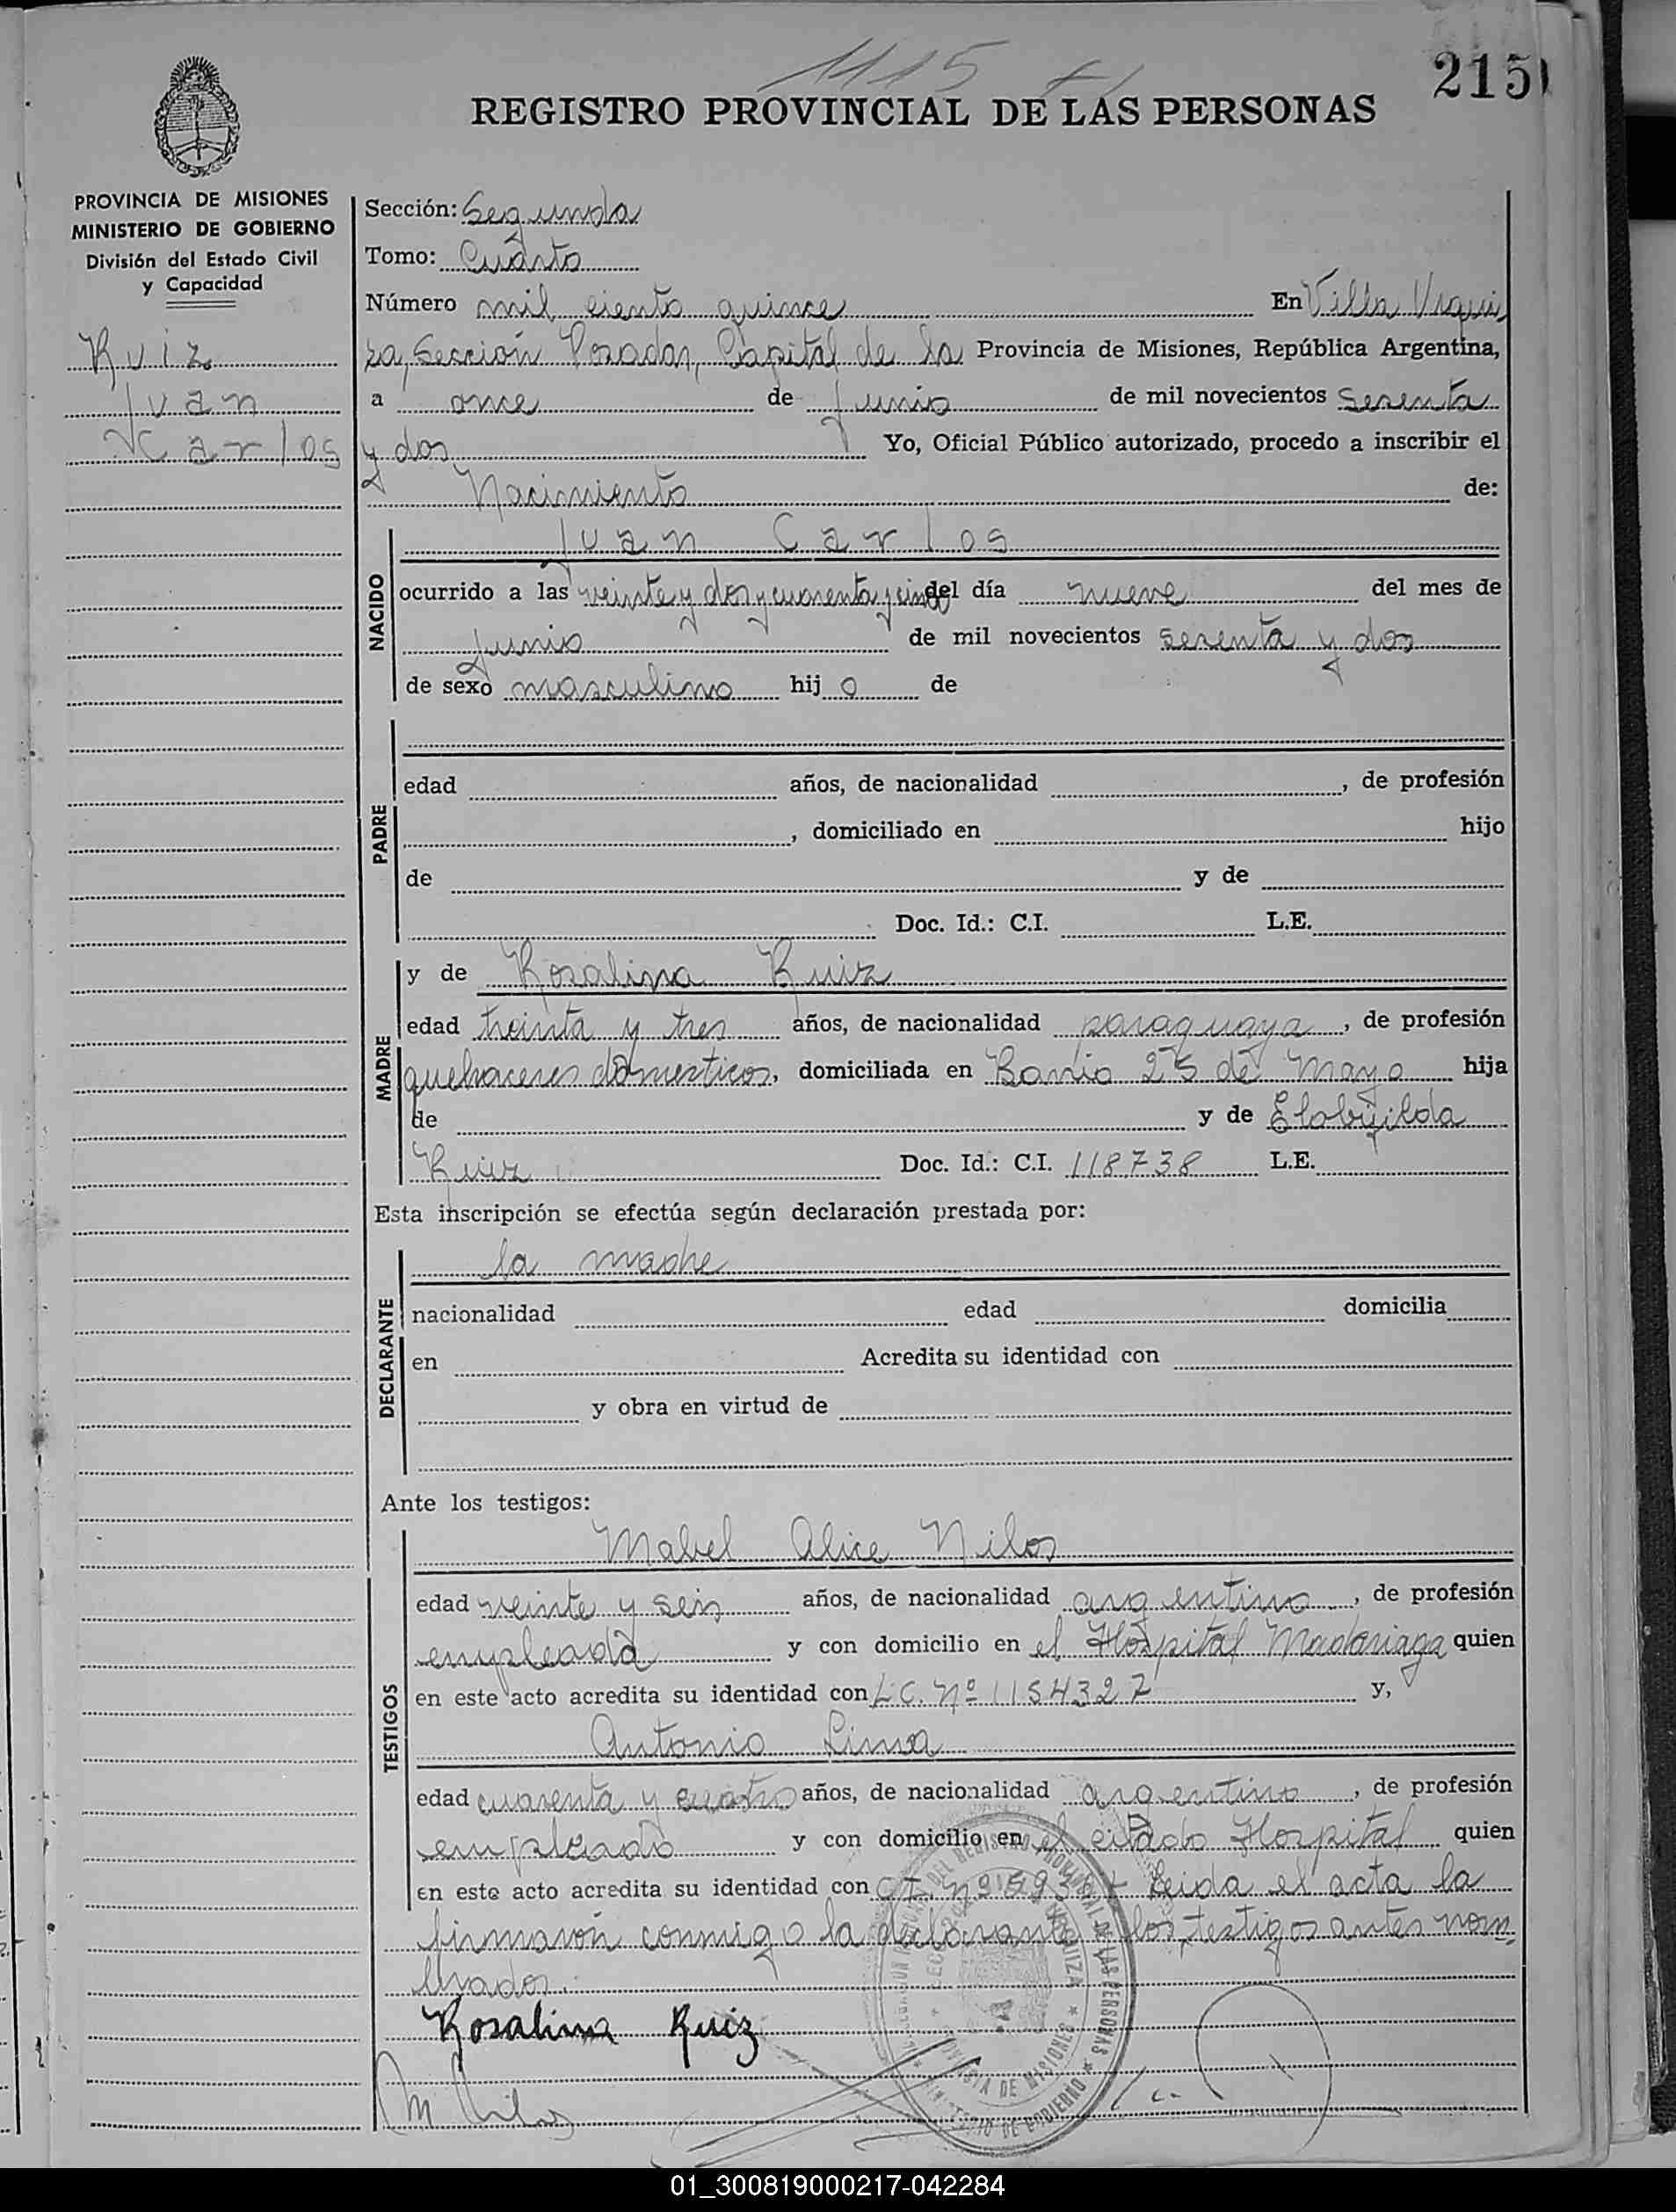 1115
215
REGISTRO PROVINCIAL DE LAS PERSONAS
PROVINCIA DE MISIONES
MINISTERIO DE GOBIERNO
División del Estado Civil
y Capacidad
Ruiz
Juan
Carlos
Sección: Segunda
Tomo: Cuarto
Número mil ciento quince En Villa Urqui
za, Sección Posadas, Capital de la Provincia de Misiones, República Argentina,
a once de junio de mil novecientos sesenta
y dos Yo, Oficial Público autorizado, procedo a inscribir el
Nacimiento de:
NACIDO
Juan Carlos
ocurrido a las veinte y dos y cuarenta y cinco del día nueve del mes de
junio de mil novecientos sesenta y dos
de sexo masculino hijo de
PADRE
edad años, de nacionalidad , de profesión
, domiciliado en hijo
de y de
Doc. Id.: C.I. L.E.
MADRE
y de Rosalina Ruiz
edad treinta y tres años, de nacionalidad paraguaya, de profesión
quehaceres domesticos, domiciliada en Barrio 25 de Mayo hija
de y de
Ruiz Doc. Id.: C.I. 118738 L.E.
Esta inscripción se efectúa según declaración prestada por:
DECLARANTE
la madre
nacionalidad edad domicilia
en Acredita su identidad con
y obra en virtud de
Ante los testigos:
TESTIGOS
Mabel Alice Nilos
edad veinte y seis años, de nacionalidad argentina, de profesión
empleada y con domicilio en el Hospital Madariaga quien
en este acto acredita su identidad con L.C. Nº 1154327 y,
Antonio Lima
edad cuarenta y cuatro años, de nacionalidad argentino, de profesión
empleado y con domicilio en el citado Hospital quien
en este acto acredita su identidad con Leida el acta la
firmaron conmigo la declarante y los testigos antes nom
brados.
Rosalina Ruiz
01_300819000217-042284